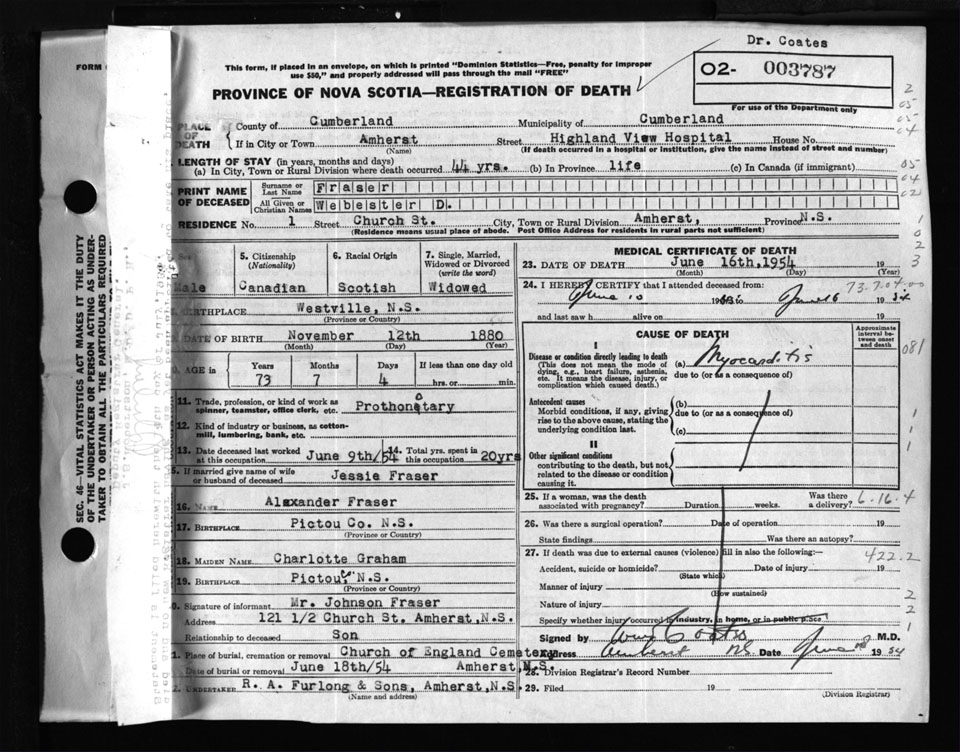 Dr. Coates
This form, if placed in an envelope, on which is printed "Dominion Statistics—Free, penalty for improper
use $50," and properly addressed will pass through the mail "FREE"
02- 003787
For use of the Department only
PROVINCE OF NOVA SCOTIA—REGISTRATION OF DEATH
FORM
SEC. 46—VITAL STATISTICS ACT MAKES IT THE DUTY
OF THE UNDERTAKER OR PERSON ACTING AS UNDER-
TAKER TO OBTAIN ALL THE PARTICULARS REQUIRED
PLACE OF DEATH
County of Cumberland Municipality of Cumberland
If in City or Town Amherst Street Highland View Hospital House No.
(Name) (If death occurred in a hospital or institution, give the name instead of street and number)
LENGTH OF STAY (in years, months and days)
(a) In City, Town or Rural Division where death occurred 44 yrs. (b) In Province life (c) In Canada (if immigrant)
PRINT NAME OF DECEASED
Surname or Last Name Fraser
All Given or Christian Names Webester D.
RESIDENCE No. 1 Street Church St. City, Town or Rural Division Amherst, Province N.S.
(Residence means usual place of abode. Post Office Address for residents in rural parts not sufficient)
Sex Male
5. Citizenship (Nationality) Canadian
6. Racial Origin Scotish
7. Single, Married, Widowed or Divorced (write the word) Widowed
BIRTHPLACE Westville, N.S.
(Province or Country)
DATE OF BIRTH November 12th 1880
(Month) (Day) (Year)
AGE in Years Months Days If less than one day old
73 7 4 hrs. or min.
11. Trade, profession, or kind of work as
spinner, teamster, office clerk, etc. Prothonotary
12. Kind of industry or business, as cotton-
mill, lumbering, bank, etc.
13. Date deceased last worked at this occupation June 9th/54
14. Total yrs. spent in this occupation 20yrs
5. If married give name of wife
or husband of deceased Jessie Fraser
16. NAME Alexander Fraser
17. BIRTHPLACE Pictou Co. N.S.
(Province or Country)
18. MAIDEN NAME Charlotte Graham
19. BIRTHPLACE Pictou, N.S.
(Province or Country)
0. Signature of informant Mr. Johnson Fraser
Address 121 1/2 Church St. Amherst, N.S.
Relationship to deceased Son
1. Place of burial, cremation or removal Church of England Cemetery
Date of burial or removal June 18th/54 Amherst, N.S.
2. UNDERTAKER R. A. Furlong & Sons, Amherst, N.S.
(Name and address)
MEDICAL CERTIFICATE OF DEATH
23. DATE OF DEATH June 16th, 1954 19
(Month) (Day) (Year)
24. I HEREBY CERTIFY that I attended deceased from:
June 10 19 to June 16 19 54
and last saw h alive on 19
CAUSE OF DEATH
Approximate interval between onset and death
I
Disease or condition directly leading to death
(This does not mean the mode of
dying, e.g., heart failure, asthenia,
etc. It means the disease, injury, or
complication which caused death.)
(a) Myocarditis
due to (or as a consequence of)
Antecedent causes
Morbid conditions, if any, giving
rise to the above cause, stating the
underlying condition last.
(b)
due to (or as a consequence of)
(c)
II
Other significant conditions
contributing to the death, but not
related to the disease or condition
causing it.
25. If a woman, was the death
associated with pregnancy? Duration weeks. Was there a delivery?
6.16.4
26. Was there a surgical operation? Date of operation 19
State findings Was there an autopsy?
27. If death was due to external causes (violence) fill in also the following:—
422.2
Accident, suicide or homicide? Date of injury 19
(State which)
Manner of injury
(How sustained)
Nature of injury
Specify whether injury occurred in industry, in home, or in public place
Signed by Coates M.D.
Address Amherst NS Date June 19 54
28. Division Registrar's Record Number
29. Filed 19
(Division Registrar)